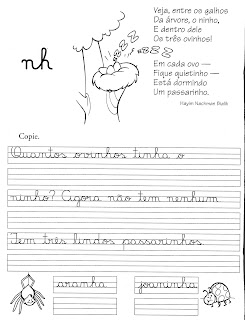 nh
Veja, entre os galhos
Da árvore, o ninho.
E dentro dele
Os três ovinhos!
Em cada ovo —
Fique quietinho —
Está dormindo
Um passarinho.
Hayim Nachman Bialik
Copie.
Quantos ovinhos tinha o
ninho? Agora não tem nenhum
Tem três lindos passarinhos
aranha
joaninha